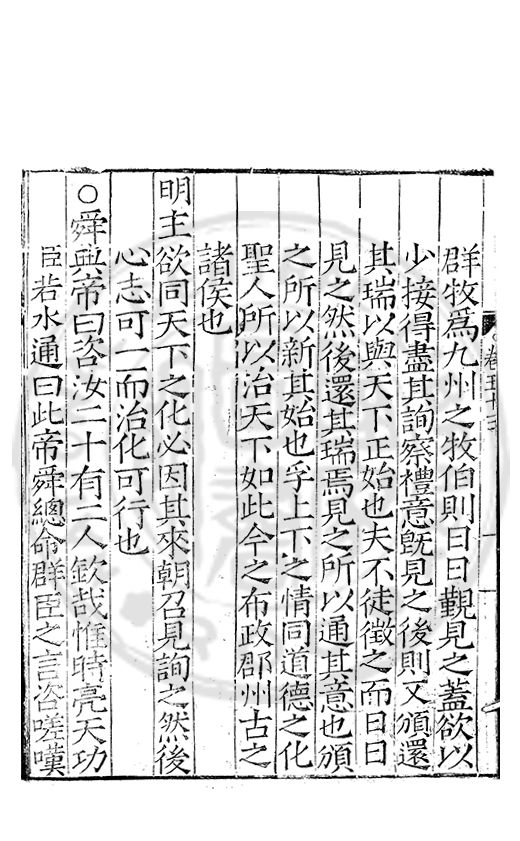 群牧爲九州之牧伯則日日覲見之蓋欲以
少接得盡其詢察禮意旣見之後則又頒還
其瑞以與天下正始也夫不徒徵之而日日
見之然後還其瑞焉見之所以通其意也頒
之所以新其始也孚上下之情同道德之化
聖人所以治天下如此今之布政郡州古之
諸侯也
明主欲同天下之化必因其來朝召見詢之然後
心志可一而治化可行也
○舜典帝曰咨汝二十有二人欽哉惟時亮天功
臣若水通曰此帝舜總命群臣之言咨嗟嘆
卷五十三